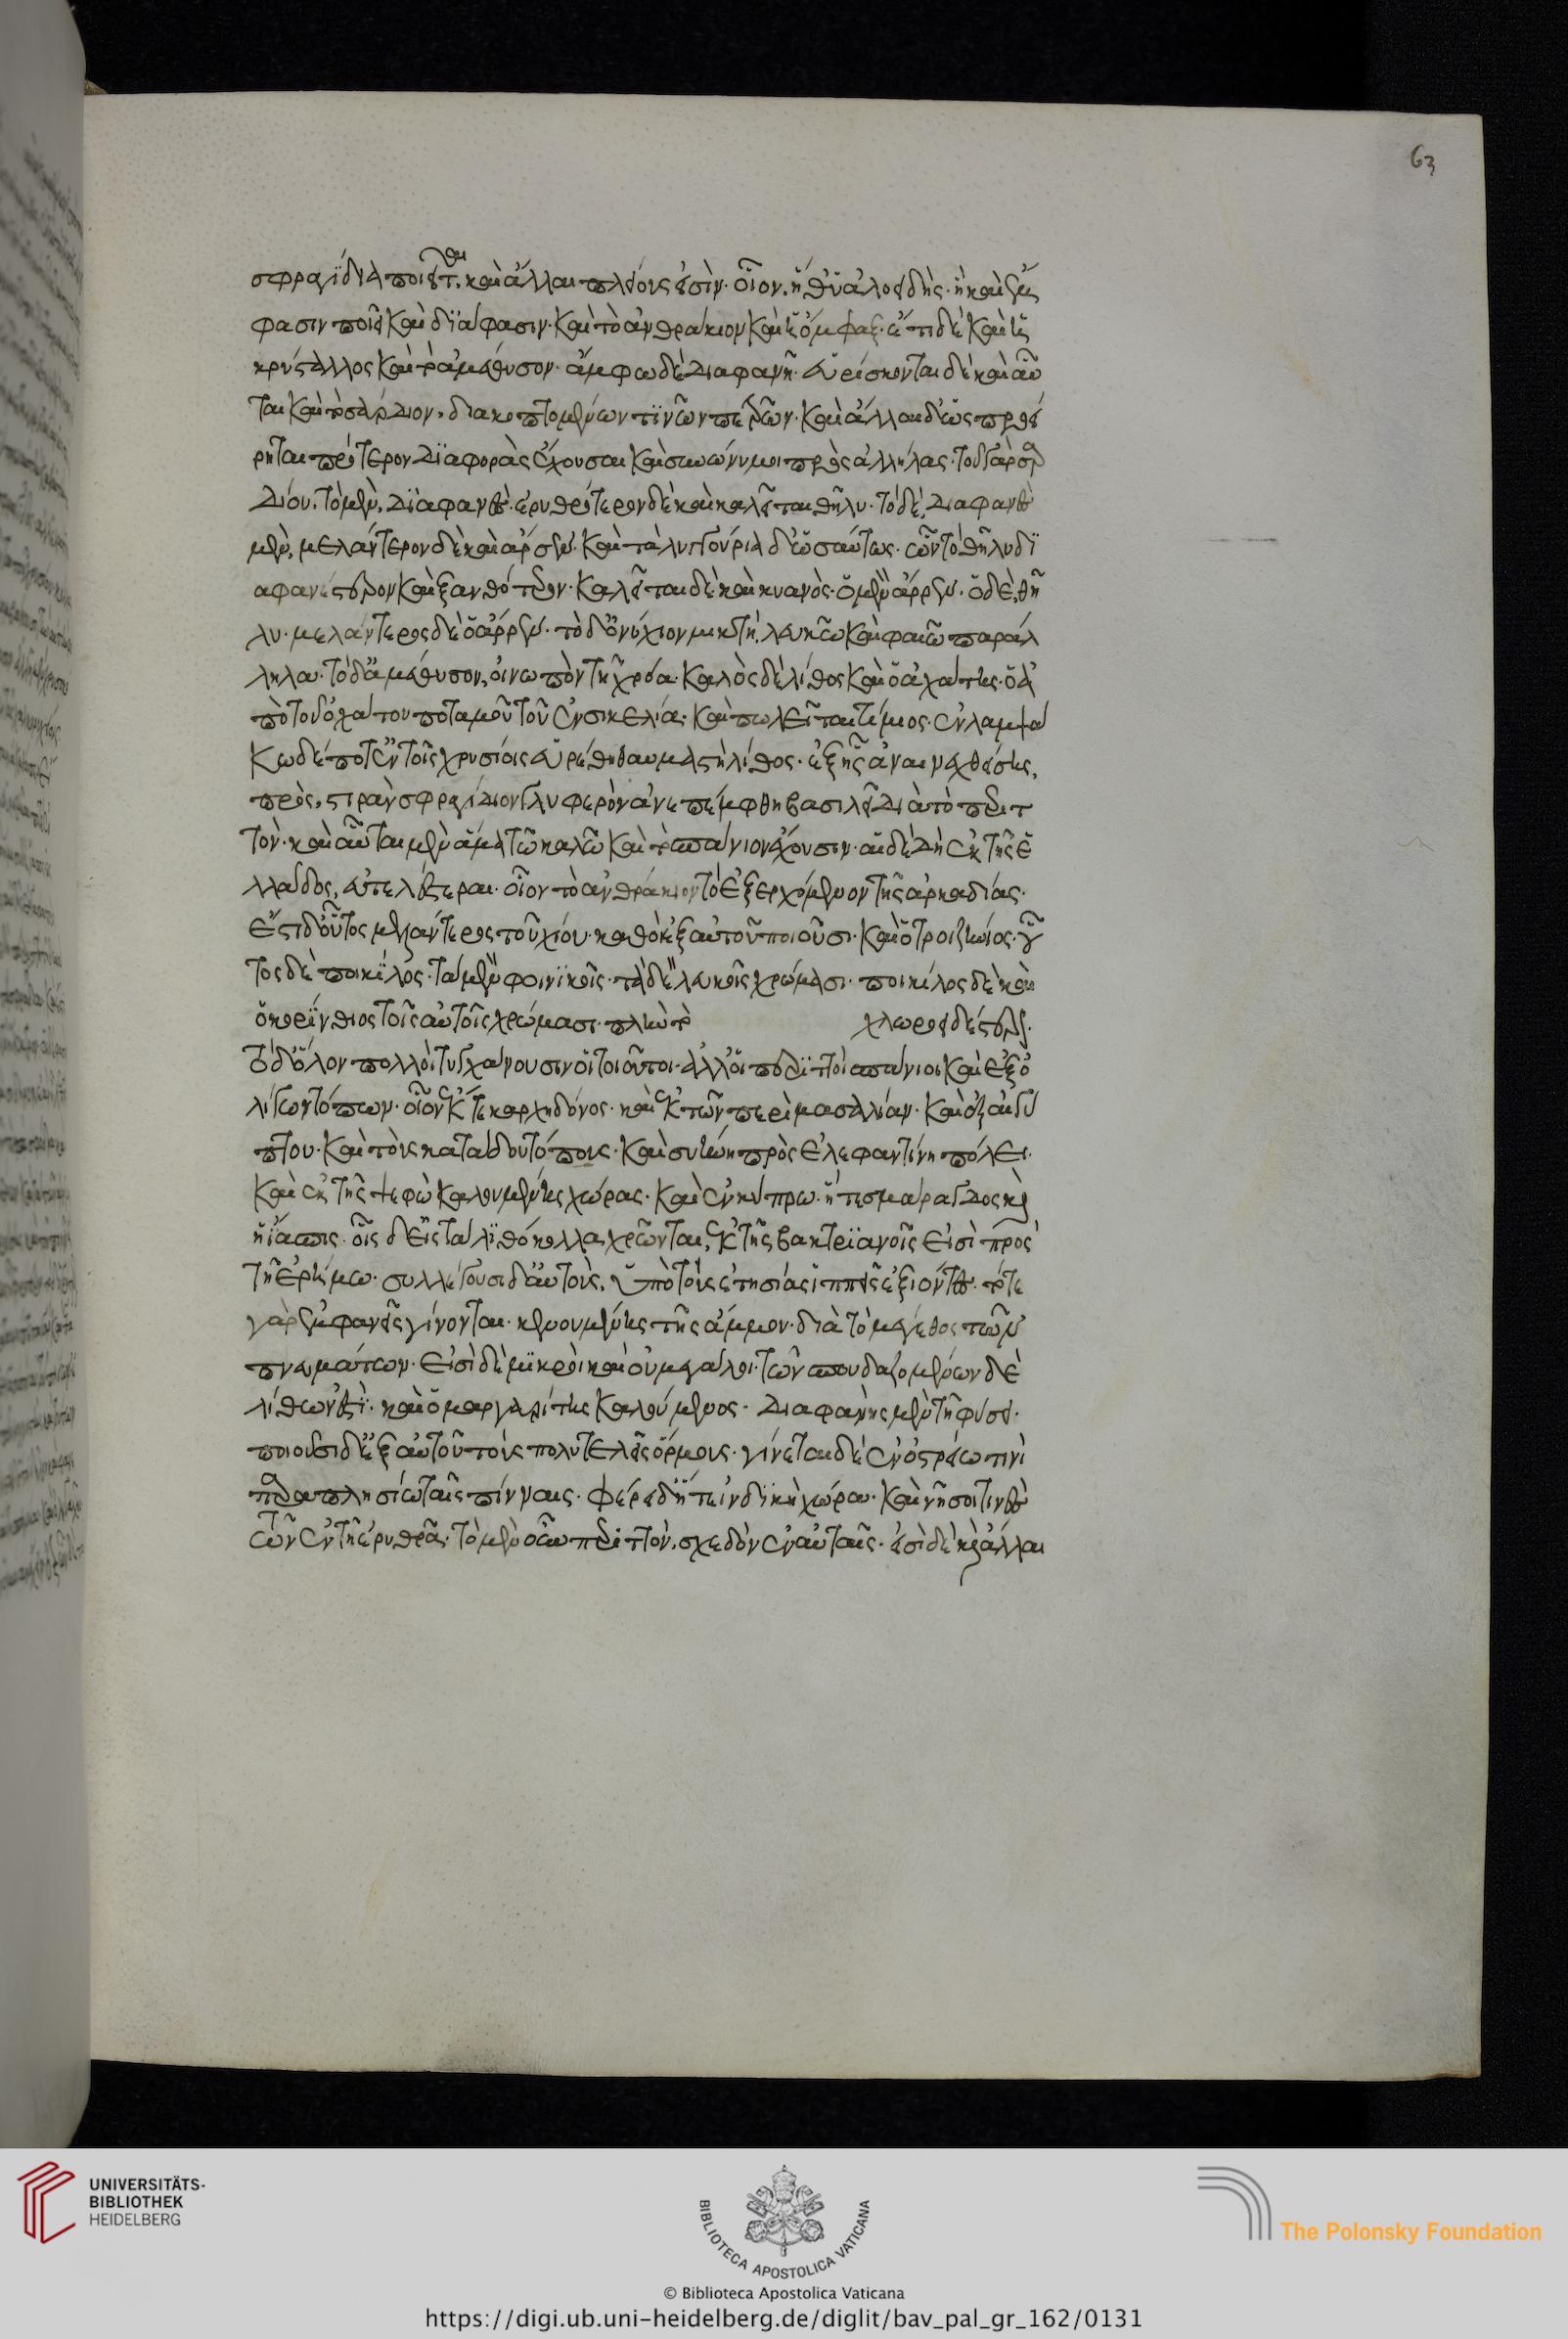 63
σφραγίδια ποιεῖται. καὶ ἄλλαι πλείους εἰσὶν. οἷον, ἥ θ' ὑαλοειδὴς. ἣ καὶ ἔμ
φασιν ποιεῖ καὶ διάφασιν. καὶ τὸ ἀνθράκιον καὶ ἡ ὄμφαξ. ἔτι δὲ καὶ ἡ
κρύσταλλος καὶ τὸ ἀμέθυσον. ἄμφω δὲ διαφανῆ. εὑρίσκονται δὲ καὶ αὗ
ται καὶ τὸ σάρδιον, διακοπτομένων τινῶν πετρῶν. καὶ ἄλλαι δὲ ὡς προεί
ρηται πρότερον διαφορὰς ἔχουσαι καὶ συνώνυμοι πρὸς ἀλλήλας. τοῦ γὰρ σαρ
δίου, τὸ μὲν, διαφανὲς. ἐρυθρότερον δὲ καὶ καλεῖται θῆλυ. τὸ δὲ, διαφανὲς
μὲν, μελάντερον δὲ καὶ ἄρσεν. καὶ τὰ λυγγούρια δὲ ὡσαύτως. ὧν τὸ θῆλυ δι
αφανέστερον καὶ ξανθότερον. καλεῖται δὲ καὶ κυανὸς. ὁ μὲν ἄρρεν. ὁ δὲ, θῆ
λυ. μελάντερος δὲ ὁ ἄρρεν. τὸ δ' ὀνύχιον μικτὴ, λευκῶ καὶ φαιῶ παράλ
ληλα. τὸ δ' ἀμέθυσον, οἰνωπὸν τῆ χρόα. καλὸς δὲ λίθος καὶ ὁ ἀχάτης. ὁ ἀ
πὸ τοῦ ἀχάτου ποταμοῦ τοῦ ἐν σικελία. καὶ πωλεῖται τίμιος. ἐν λαμψά
κω δέ ποτ' ἐν τοῖς χρυσίοις εὑρέθη θαυμαστὴ λίθος. ἐξ ἧς ἀναινεχθείσης,
πρὸς, στιρὰν σφραγίδιον γλυφερὸν ἀνεπέμφθη βασιλεῖ διὰ τὸ περιτ
τὸν. καὶ αὗται μὲν ἅμα τῶ καλῶ καὶ τὸ σπάνιον ἔχουσιν. αἱ δὲ δὴ ἐκ τῆς ἑ
λλάδος, εὐτελέστεραι. οἷον τὸ ἀνθράκιον τὸ ἐξ ἐρχόμενον τῆς ἀρκαδίας.
ἔστι δ' οὗτος μελάντερος τοῦ χίου. καθόκ ἐξ αὐτοῦ ποιοῦσι. καὶ ὁ τροιζήνιος. οὗ
τος δὲ ποικίλος. τὰ μὲν φοινικοῖς. τὰ δὲ λευκοῖς χρώμασι. ποικίλος δὲ καὶ
ὁ κορίνθιος τοῖς αὐτοῖς χρώμασι. πλὴν τὸ χλωροειδέστερος.
τὸ δ' ὅλον πολλοὶ τυγχάνουσιν οἱ τοιοῦτοι. ἀλλ' οἱ περιττοὶ σπάνιοι καὶ ἐξ ὀ
λίγων τόπων. οἷον ἔκ τε καρχηδόνος. καὶ ἐκ τῶν περὶ μασαλίαν. καὶ ἐξ αἰγύ
πτου. καὶ τοὺς καταδούτόπους. καὶ συήνη πρὸς ἐλεφαντίνη πόλει.
καὶ ἐκ τῆς ψεφὼ καλουμένης χώρας. καὶ ἐν κύπρω. ἥ τε σμάραγδος καὶ
ἡ ἴασπις. οἷς δὲ εἰς τὰ λιθόκολλα χρῶνται, ἐκ τῆς βακτριανοῖς εἰσὶ πρὸς
τῆ ἐρήμω. συλλέγουσι δ' αὐτοὺς, ὑπὸ τοὺς ἐτησίας ἱππεῖς ἐξιόντες. τότε
γὰρ ἐμφανεῖς γίνονται. κενουμένης τῆς ἄμμου. διὰ τὸ μέγεθος τῶν
πνευμάτων. εἰσὶ δὲ μικροὶ καὶ οὐ μεγάλοι. τῶν σπουδαζομένων δὲ
λίθων ἐστὶ. καὶ ὁ μαργαρίτης καλούμενος. διαφανὴς μὲν τῆ φύσει.
ποιοῦσι δὲ ἐξ αὐτοῦ τοὺς πολυτελεῖς ὅρμους. γίνεται δὲ ἐν ὀστρέω τινὶ
παραπλησίω ταῖς πίνναις. φέρει δ' ἥ τε ἰνδικὴ χώρα. καὶ νῆσοι τινὲς
τῶν ἐν τῆ ἐρυθρᾶ. τὸ μὲν οὖν περιττὸν, σχεδὸν ἐν αὐταῖς. εἰσὶ δὲ καὶ ἄλλαι
UNIVERSITÄTS-
BIBLIOTHEK
HEIDELBERG
BIBLIOTECA APOSTOLICA VATICANA
The Polonsky Foundation
© Biblioteca Apostolica Vaticana
https://digi.ub.uni-heidelberg.de/diglit/bav_pal_gr_162/0131